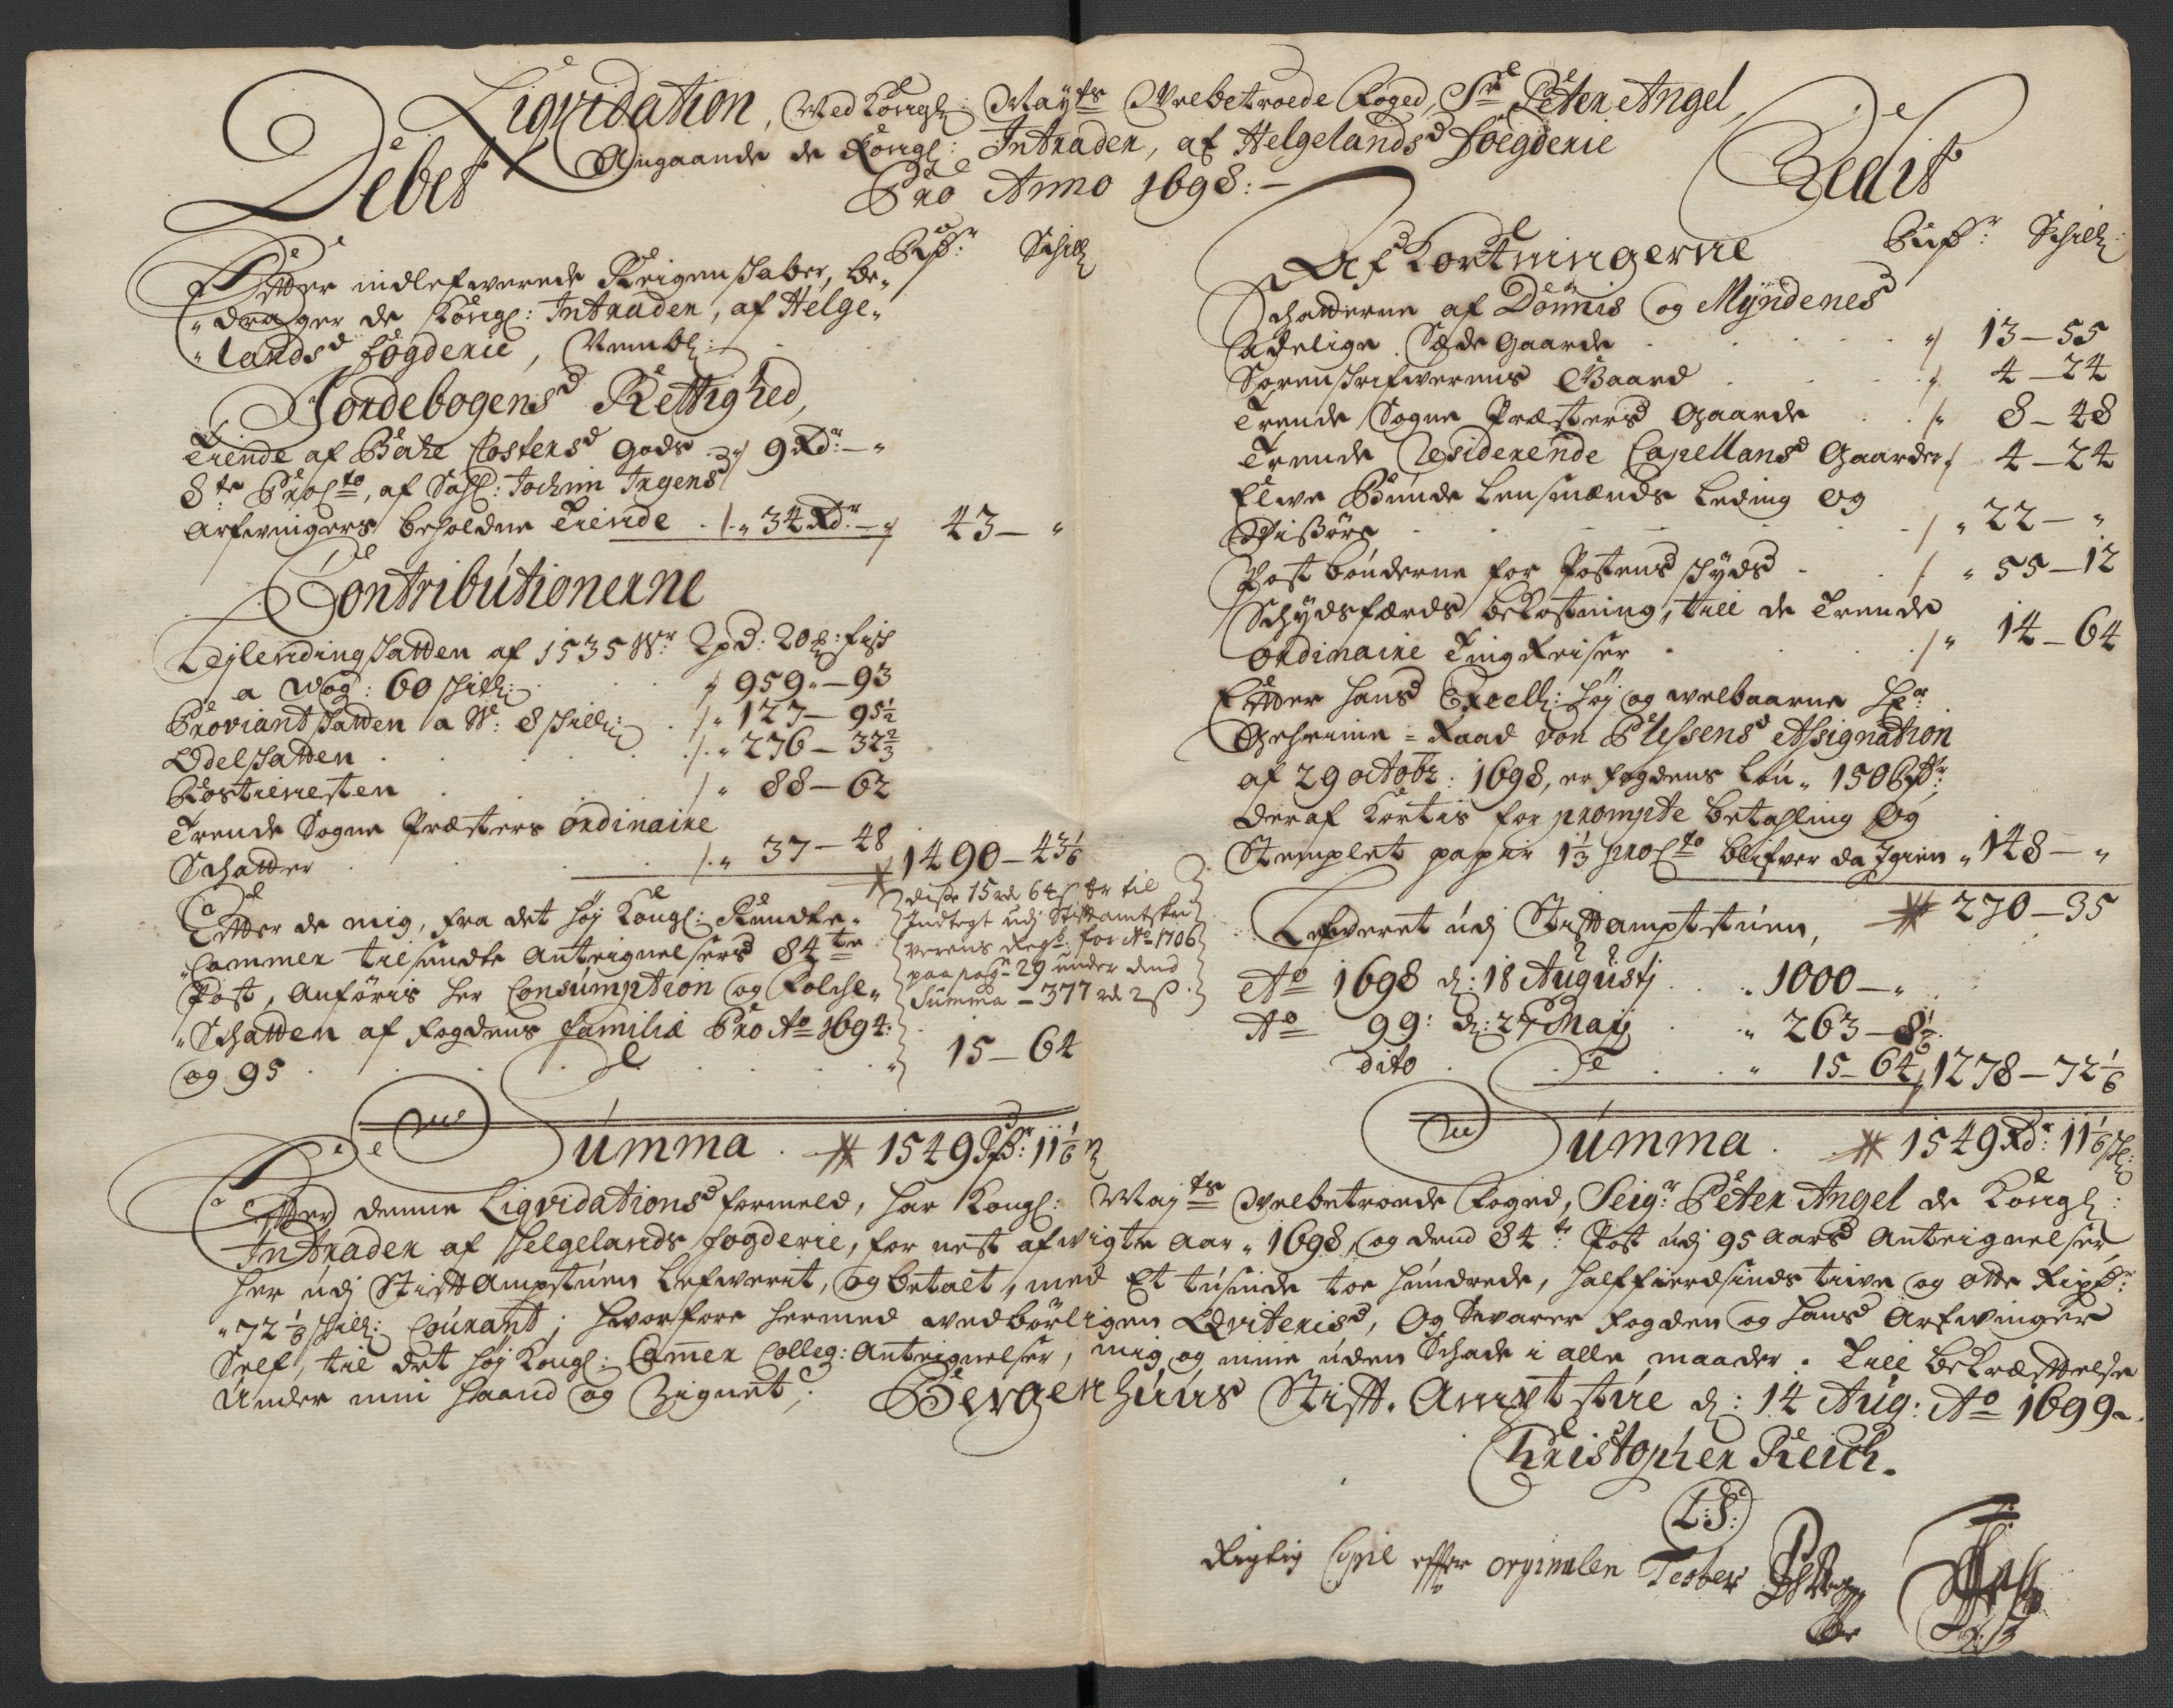 Liqvidation, Med Kongl: Mayts Velbetroede Foged, Sr Peter Angel,
Angaaende de Kongl: Intrader, af Helgelands Foegderie
Pro Anno 1698:
Debet
Rixdr: Schill
Effter indlefwerede Reigenskaber, be-
drager de Kongl: Intrader, af Helge-
lands fogderie, Nembl:
Jordebogens Rettighed,
Tiende af Bache Closters gods 9 Rdr: — "
8te Procto, af Sahl: Jochim Irgens
Arfwingers beholdne Tiende . 34 Rdr — 43 — "
Contributionerne
Leylendingschatten af 1535 W: 2 pd: 20 ℔: fisk
a Wog: 60 schill: 959 — 93
Proviantschatten a W: 8 schill: 127 — 95½
Odelschatten 276 — 32⅔
Rostienesten 88 — 62
Trende Sogne Præsters ordinaire
Schatter 37 — 48 1490 — 43⅙
Effter de mig, fra det høy Kongl: Rendte-
Cammer tilsendte Anteignelsers 84te
Post, Anføris her Consumption og Folche-
Schatten af Fogdens familie Pro Ao 1694:
og 95 15 — 64
disse 15 rd 64 s er til
Indtegt udj Stiftamtskri
verens Regsk: for Ao 1706
paa pag: 29 under dend
Summa — 377 rd 2 s
Summa . 1549 Rdr: 11⅙
Credit
Rixdr: Schill:
Afkortningerne
Schatterne af Dønnis og Myndenes
Adelige Sæde Gaarde 13 — 55
Sorenschrifwerens Gaard 4 — 24
Trende Sogne Præsters Gaarde 8 — 48
Trende Residerende Capellans Gaarder 4 — 24
Elwe Bunde Lensmænds Leding og
Wissøre 22 — "
Postbønderne for Postens schyds 55 — 12
Schydsfærds bekostning, till de Trende
ordinaire Ting Reiser 14 — 64
Effter hans Excell: høy og welbaarne Hr
Geheime = Raad von Plessens Assignation
af 29 octobr: 1698, er fogdens Løn " 150 Rdr:
deraf Kortis for prompte betahling og
Stemplet papir 1⅓ procto blifver da Igien " 148 — "
270 — 35
Lefweret udj Stiftamptstuen,
Ao 1698 d: 18 Augustj . . " 1000 — "
Ao 99: d: 27 Maij " 263 — 8⅙
dito 15 — 64 1278 — 72⅙
Summa . 1549 Rdr: 11⅙ sch:
Effter denne Liqvidations formeld, har Kongl: Mayts Velbetroede Foged, Seigr: Peter Angel de Kongl:
Intrader af Helgelands fogderie, for nest afvigte Aar " 1698, og dend 84te Post udj 95 Aars Anteignelser
her udj Stiftampstuen Lefwerit, og betalt, med Et tusinde toe hundrede, halffierdsinds tiuve og otte Rixdr:
" 72⅙ schill: Courant; Hvorfore hermed vedbørligen Qviteris, Og Svarer Fogden og hans Arfwinger
Self, til det høy Kongl: Camer Colleg: Anteignelser, mig og mine uden Schade i alle maader. Till bekræfftelse
Under min haand og Zignet; Bergenhuus Stift. Amptstue d: 14 Aug: Ao 1699.
Christopher Reich.
L:S:
Rigtig Copie effter orginalen Tester